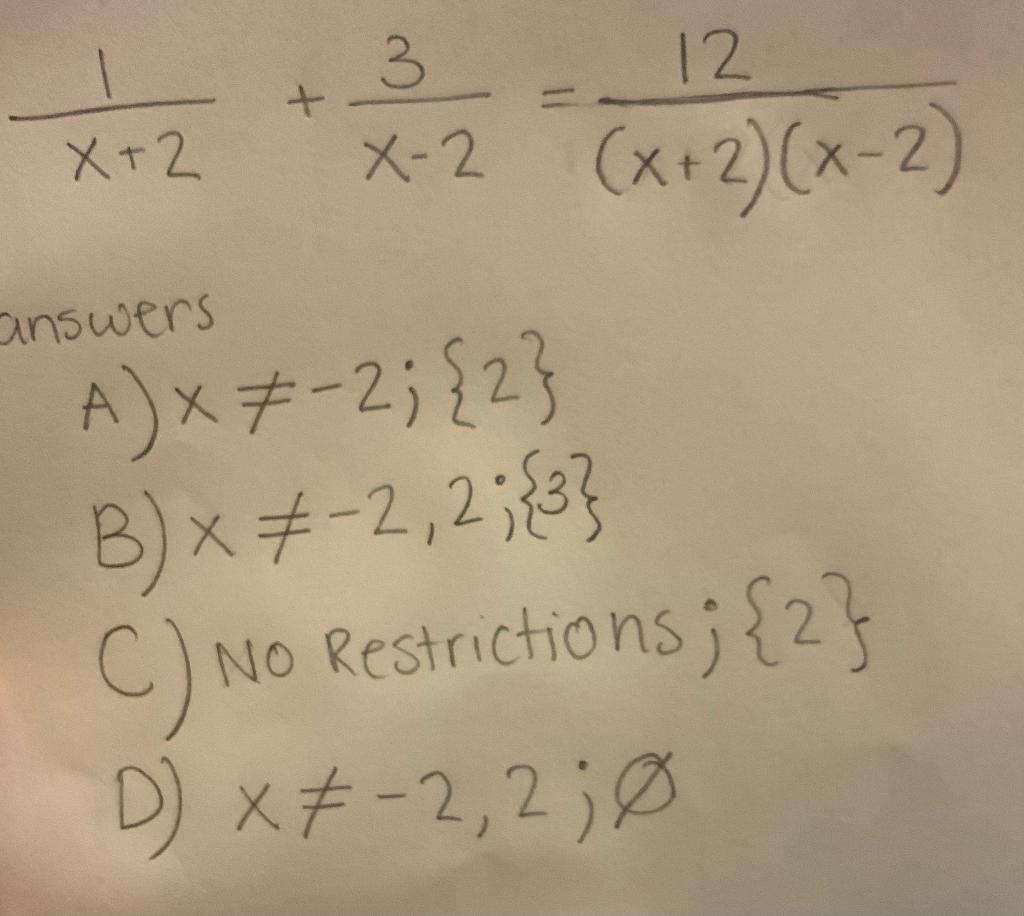 1/(x+2) + 3/(x-2) = 12/((x+2)(x-2))
answers
A) x ≠ -2; {2}
B) x ≠ -2, 2; {3}
C) No Restrictions; {2}
D) x ≠ -2, 2; Ø